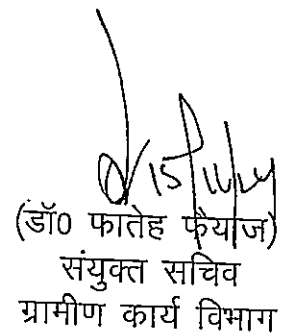 15/11/24
(डॉ0 फातेह फैयाज)
संयुक्त सचिव
ग्रामीण कार्य विभाग